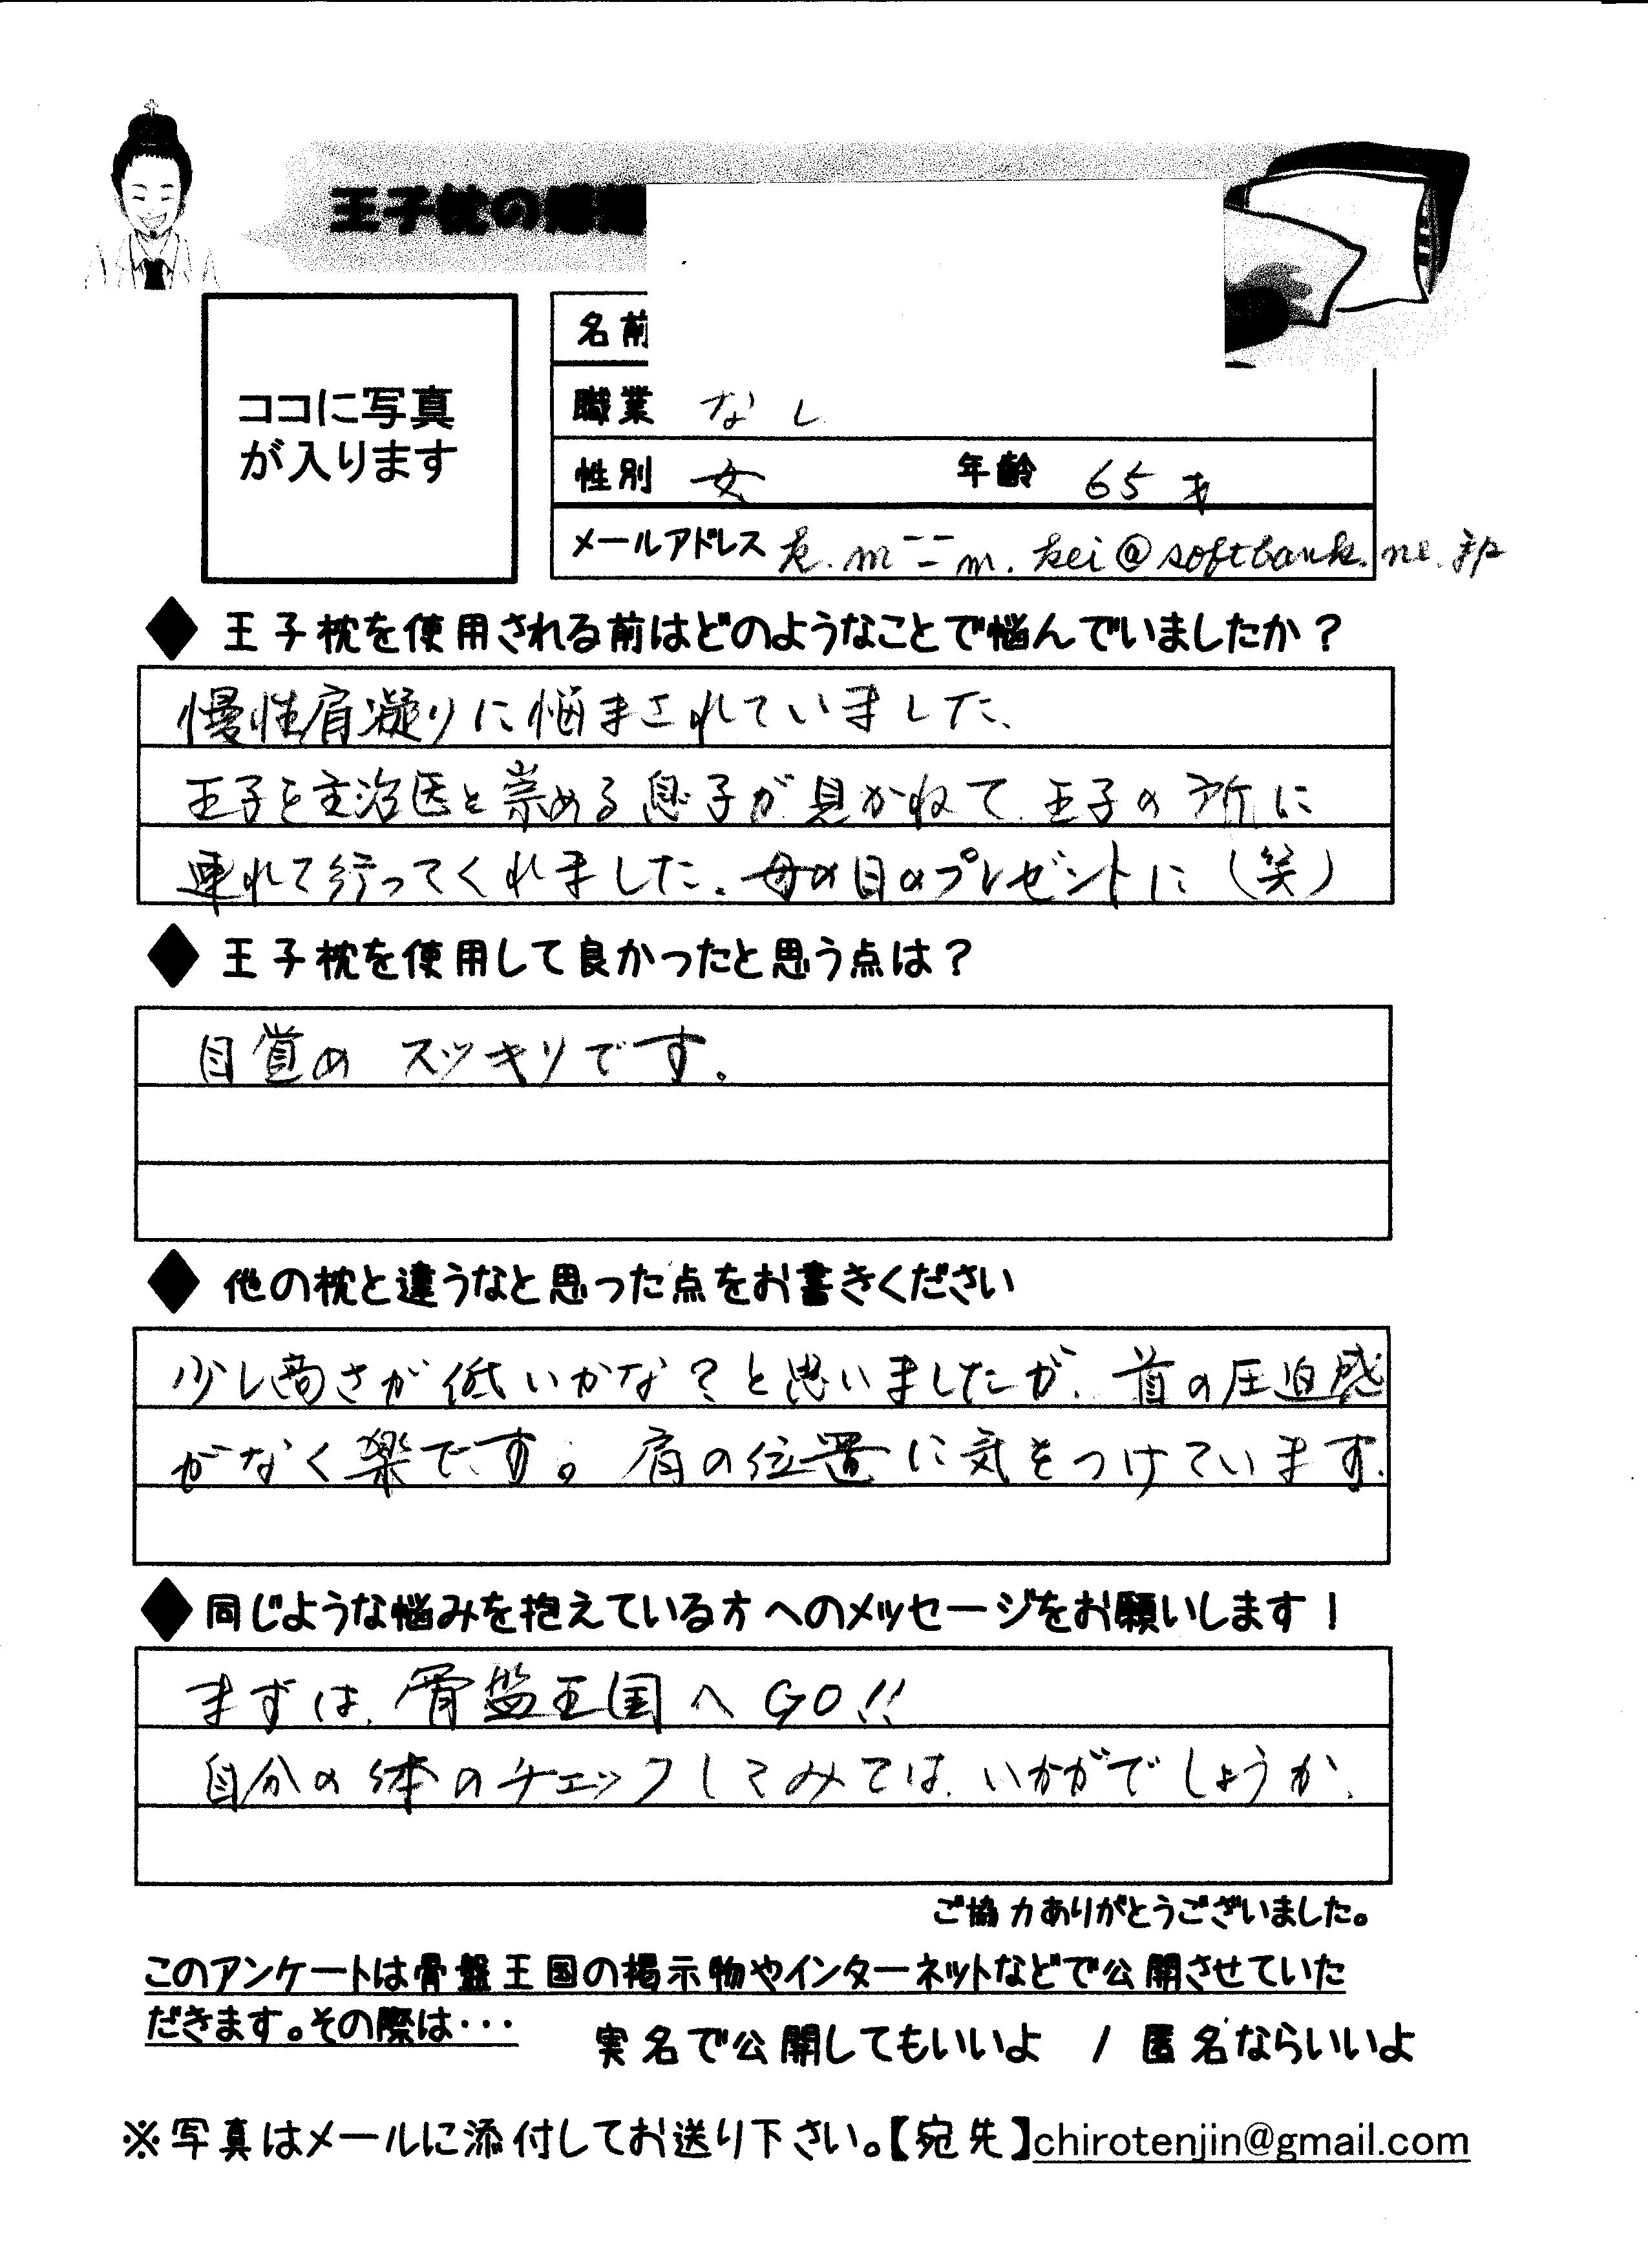 王子枕の感想
ココに写真
が入ります
名前
職業 なし
性別 女 年齢 65才
メールアドレス k.m--m.kei@softbank.ne.jp
◆ 王子枕を使用される前はどのようなことで悩んでいましたか？
慢性肩凝りに悩まされていました、
王子を主治医と崇める息子が見かねて、王子の所に
連れて行ってくれました。母の日のプレゼントに（笑）
◆ 王子枕を使用して良かったと思う点は？
目覚め スッキリです。
◆ 他の枕と違うなと思った点をお書きください
少し高さが低いかな？と思いましたが、首の圧迫感
がなく楽です。肩の位置に気をつけています、
◆ 同じような悩みを抱えている方へのメッセージをお願いします！
まずは、骨盤王国へGO!!
自分の体のチェックしてみては、いかがでしょうか、
ご協力ありがとうございました。
このアンケートは骨盤王国の掲示物やインターネットなどで公開させていた
だきます。その際は・・・
実名で公開してもいいよ / 匿名ならいいよ
※写真はメールに添付してお送り下さい。【宛先】chirotenjin@gmail.com